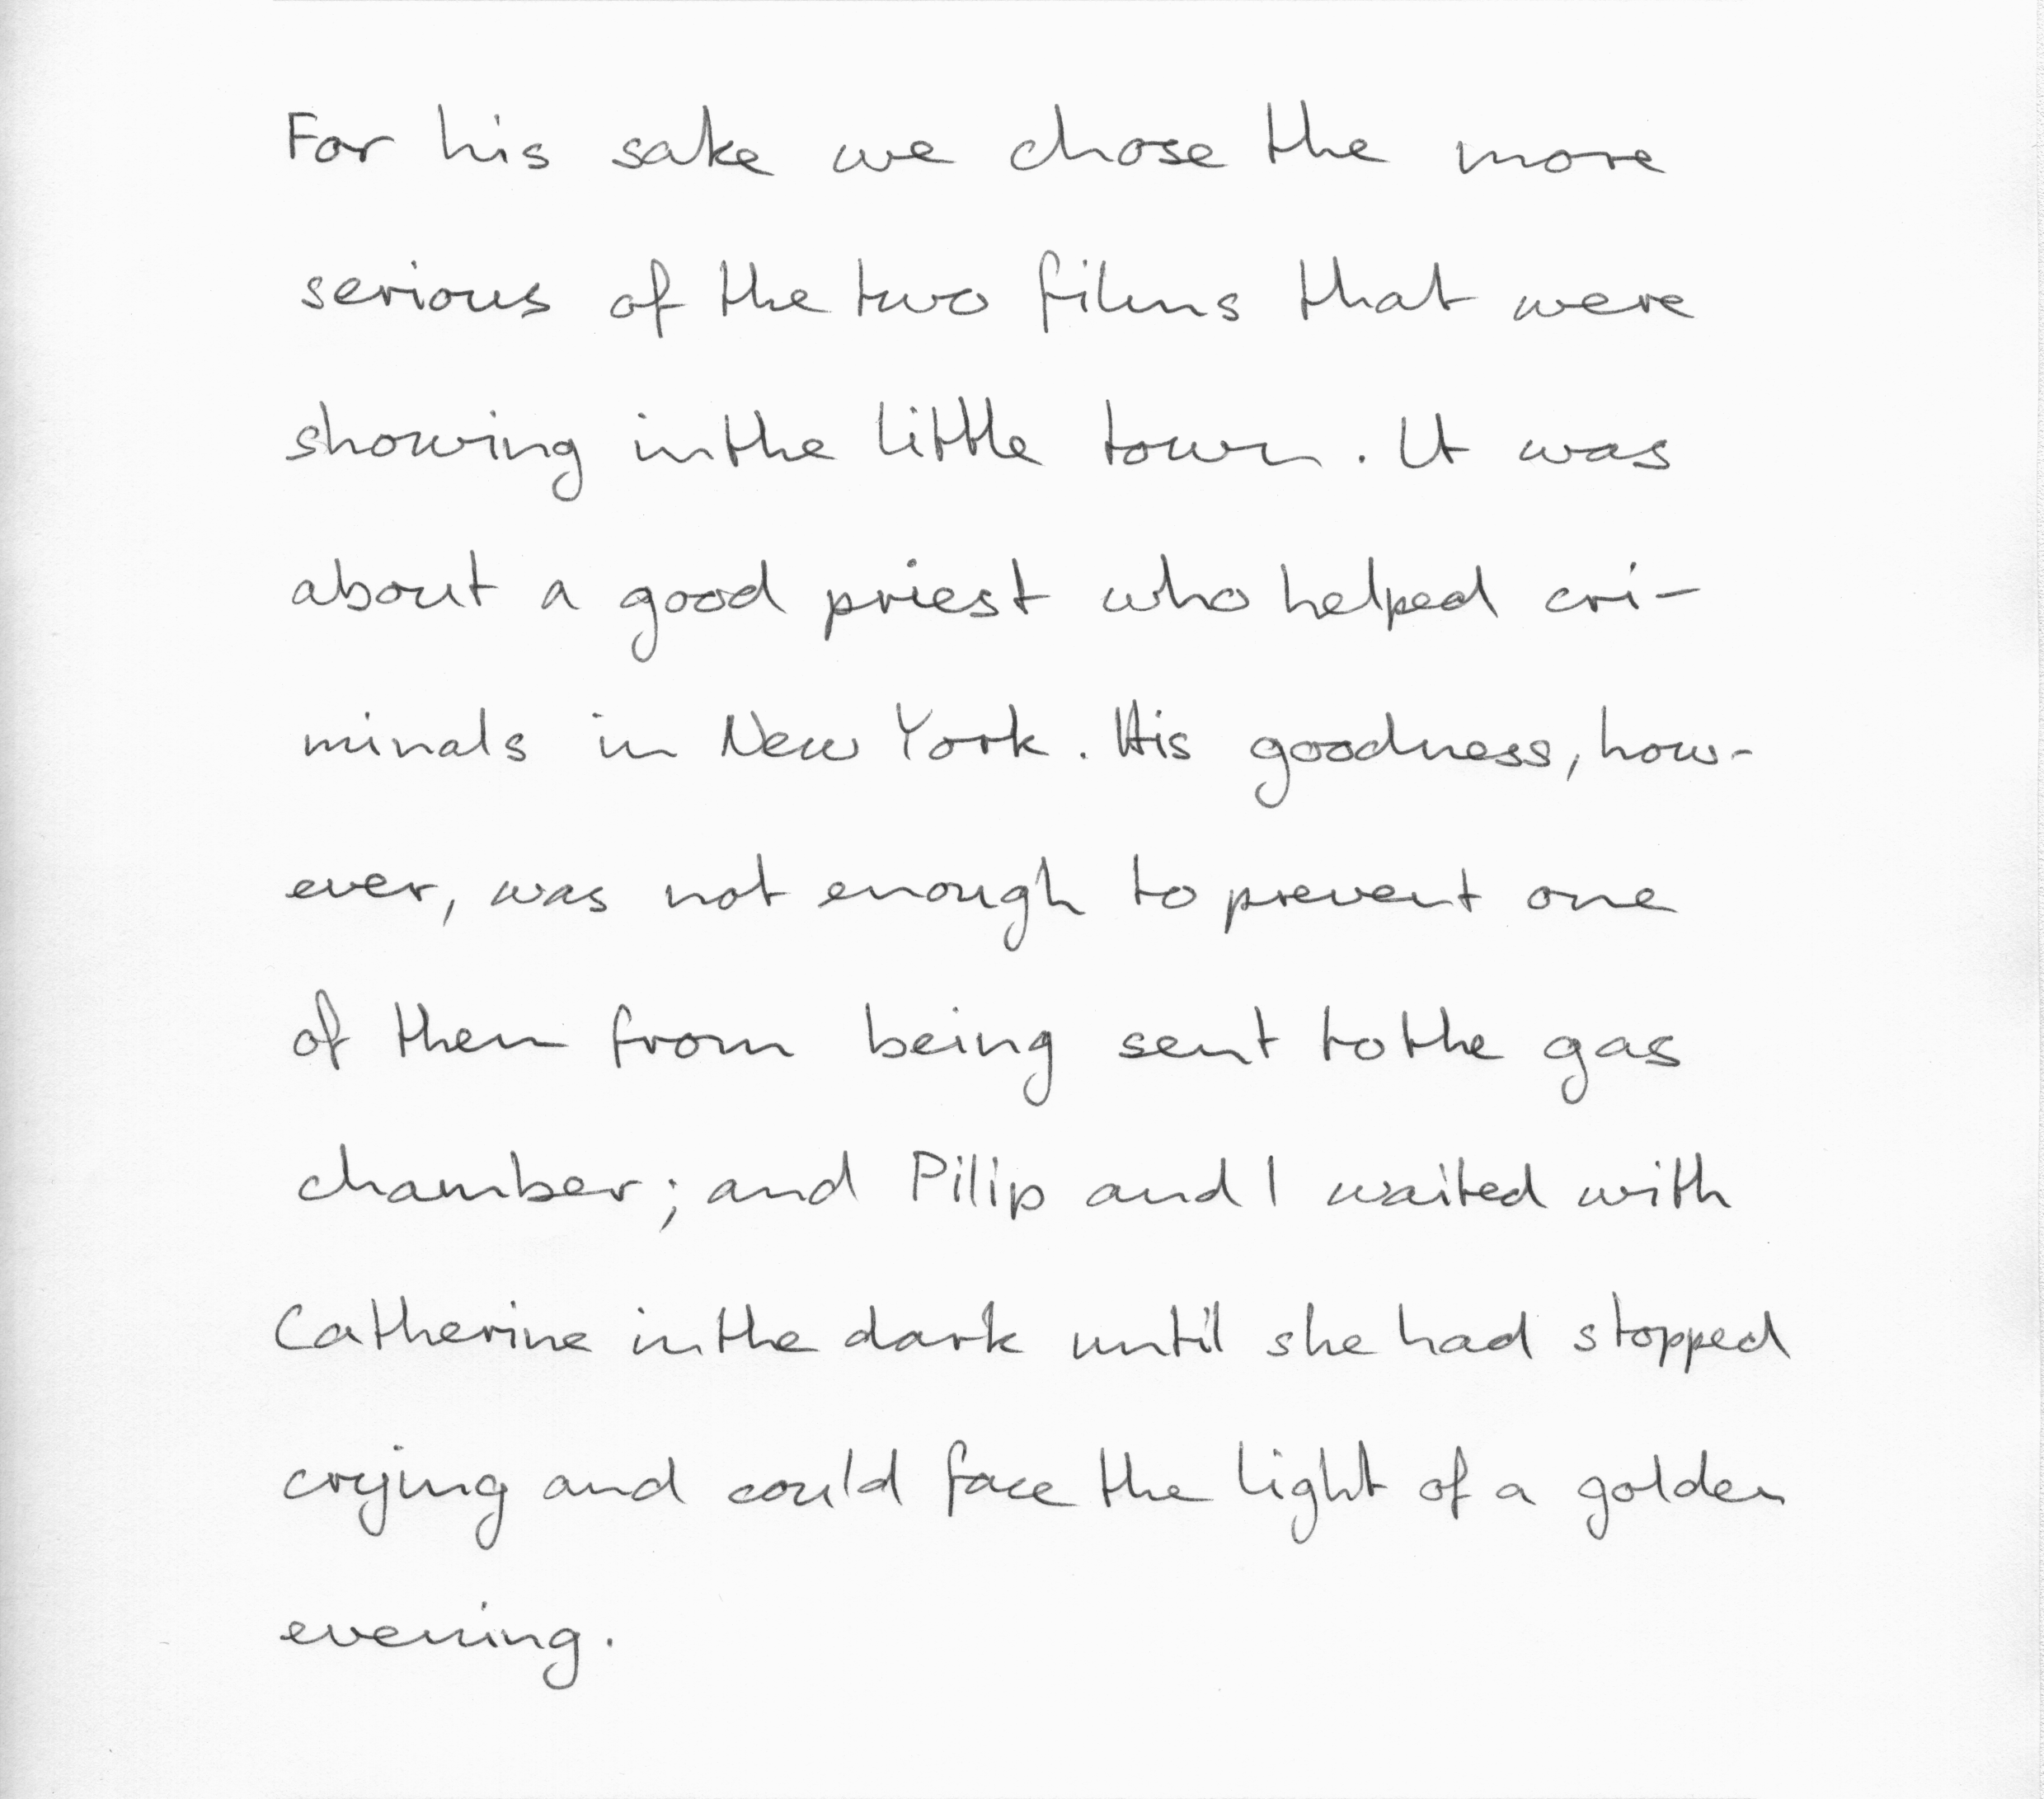 For his sake we chose the more
serious of the two films that were
showing in the little town. It was
about a good priest who helped cri-
minals in New York. His goodness, how-
ever, was not enough to prevent one
of them from being sent to the gas
chamber; and Pilip and I waited with
Catherine in the dark until she had stopped
crying and could face the light of a golden
evening.